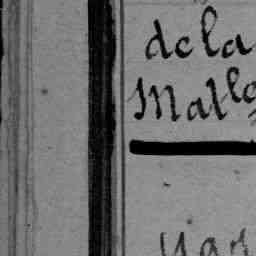 de la
Malle